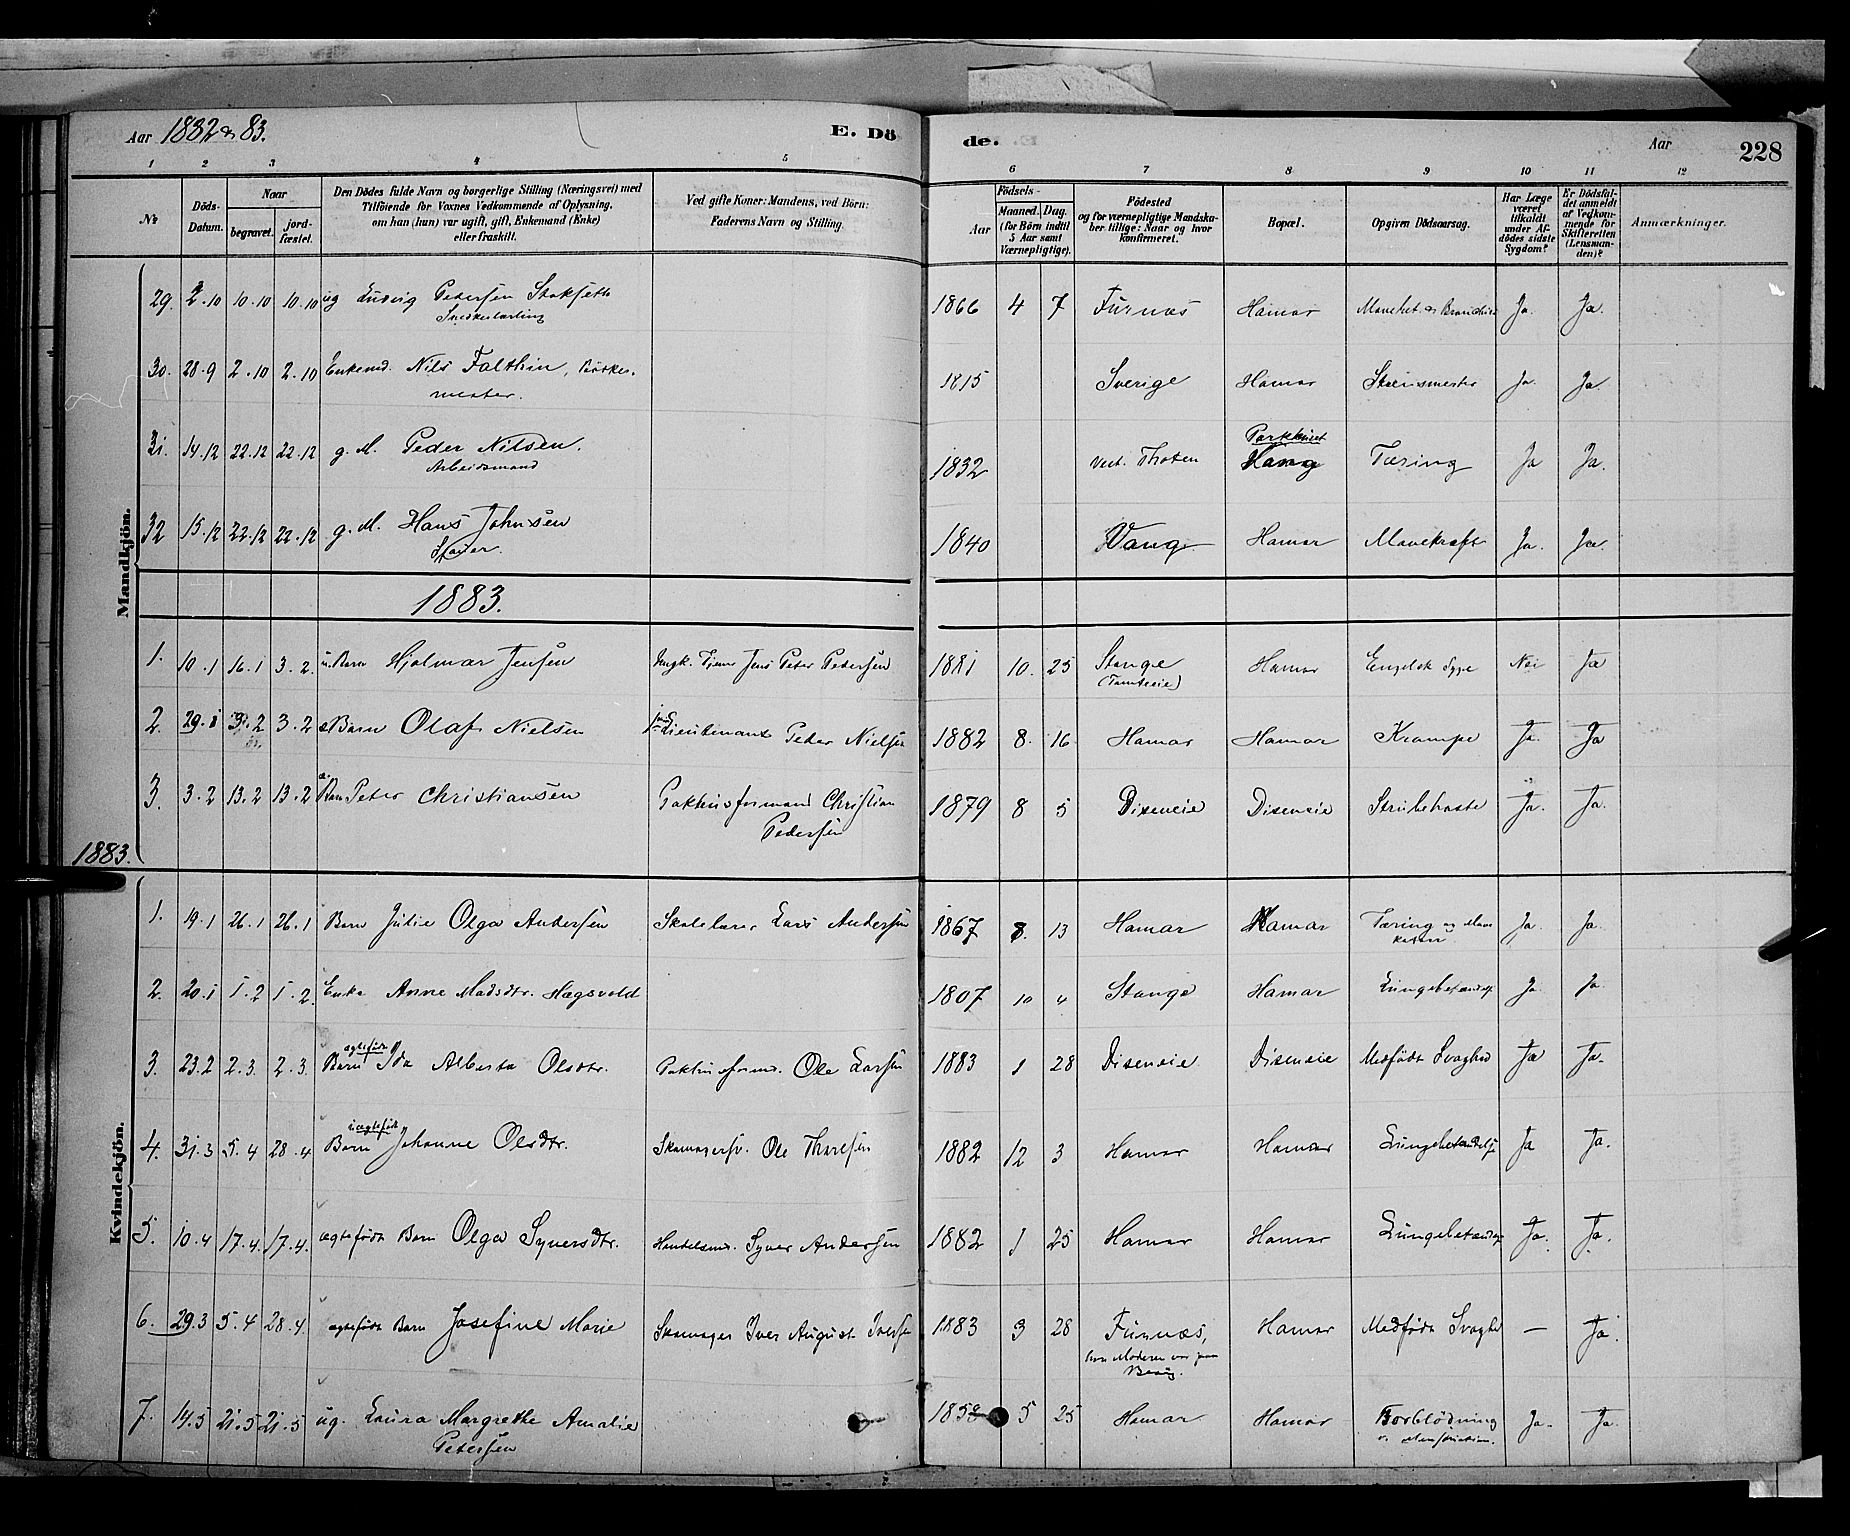 Aar 1882 & 83. E. Dö de. Aar 228
1 2 3 4 5 6 7 8 9 10 11 12
No Döds-Datum. Naar begravet. jord-fæstet. Den Dödes fulde Navn og borgerlige Stilling (Næringsvei) med Tilföiende for Voxnes Vedkommende af Oplysning, om han (hun) var ugift, gift, Enkemand (Enke) eller fraskilt. Ved gifte Koner: Mandens, ved Börn: Faderens Navn og Stilling. Födsels- Aar Maaned. Dag. (for Börn indtil 5 Aar samt Værnepligtige). Födested og for værnepligtige Mandskaber tillige: Naar og hvor konfirmeret. Bopæl. Opgiven Dödsaarsag. Har Læge været tilkaldt under Afdödes sidste Sygdom? Er Dödsfaldet anmeldt af Vedkommende for Skifteretten (Lensmanden)? Anmærkninger.
Mandkjön.
29. 2.10 10.10 10.10 ug Ludvig Pedersen Stokset 1866 4 7 Furnæs Hamar Ja. Ja.
Snedkerlærling
30. 28.9 2.10 2.10 Enkemd. Nils Falthin, 1815 Sverige Hamar Ja. Ja.
mester.
31. 14.12 22.12 22.12 g. M. Peder Nilsen. 1832 Vest. Thoten Tæring Ja Ja.
Arbeidsmand
32 15.12 22.12 22.12 g. M. Hans Johnsen 1840 Vang Hamar Mavekræft Ja. Ja.
1883.
1. 10.1 16.1 3.2. u. Barn Hjalmar Jensen Ungk. Tjener Jens Peter Pedersen 1881 10. 25 Stange Hamar Engelsk Syge Nei Ja
2. 29.1 3.2 3.2 Barn Olaf Nielsen Lieutenant Peder Nielsen 1882 8. 16 Hamar Hamar Krampe Ja Ja
3. 3.2 13.2 13.2 Barn Peter Christiansen Pakhusformand Christian 1879 8 5 Diseneie Diseneie Strubehoste Ja. Ja.
Pedersen
1883.
Kvindekjön.
1. 19.1 26.1 26.1 Barn Julie Olga Andersen Lars Andersen 1867 8. 13 Hamar Hamar Tæring og Mave Ja. Ja.
2. 20.1 1.2 1.2. Enke Anne Madsdtr. Hægsvold 1807 10 4 Stange Hamar Lungebetændelse Ja. Ja.
3. 23.2 2.3. 2.3. Barn ægtefødt Ida Alberta Olsdtr. Pakhusformd. Ole Larsen 1883 1 28 Diseneie. Diseneie Medfødt Svaghed Ja Ja.
4. 31.3 5.4 28.4 Barn uægtefødt Johanne Olsdtr. Skomagersv. Ole Thoresen 1882 12 3 Hamar Hamar Lungebetændelse Ja Ja.
5. 10.4 17.4. 17.4. ægtefødt Barn Olga Syversdtr. Handelsmd. Syver Andersen 1882 1 25 Hamar Hamar Lungebetændelse Ja. Ja.
6. 29.3 5.4 28.4. ægtefødt Barn Josefine Marie Skomager Iver August Iversen 1883 3 28 Furnæs, Hamar Medfødt Svaghed — Ja.
hvor Moderen var paa
Besøg.
7. 14.5 21.5 21.5 ug. Laura Margrethe Amalie 1858 5 25 Hamar Hamar Forblödning Ja. Ja.
Petersen v. Menstruation.